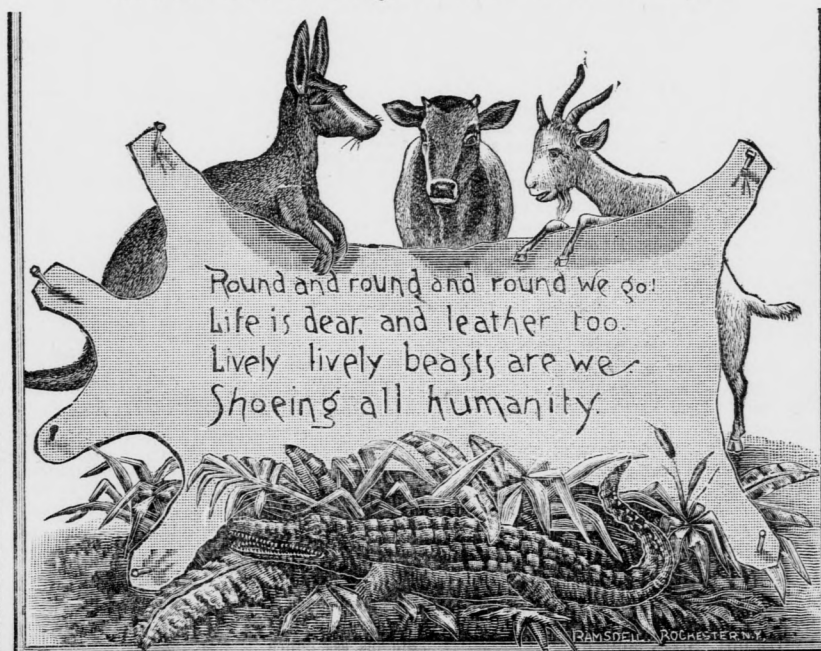 Round and round and round we go!
Life is dear, and leather too.
Lively lively beasts are we
Shoeing all humanity.
RAMSDELL. ROCHESTER N.Y.